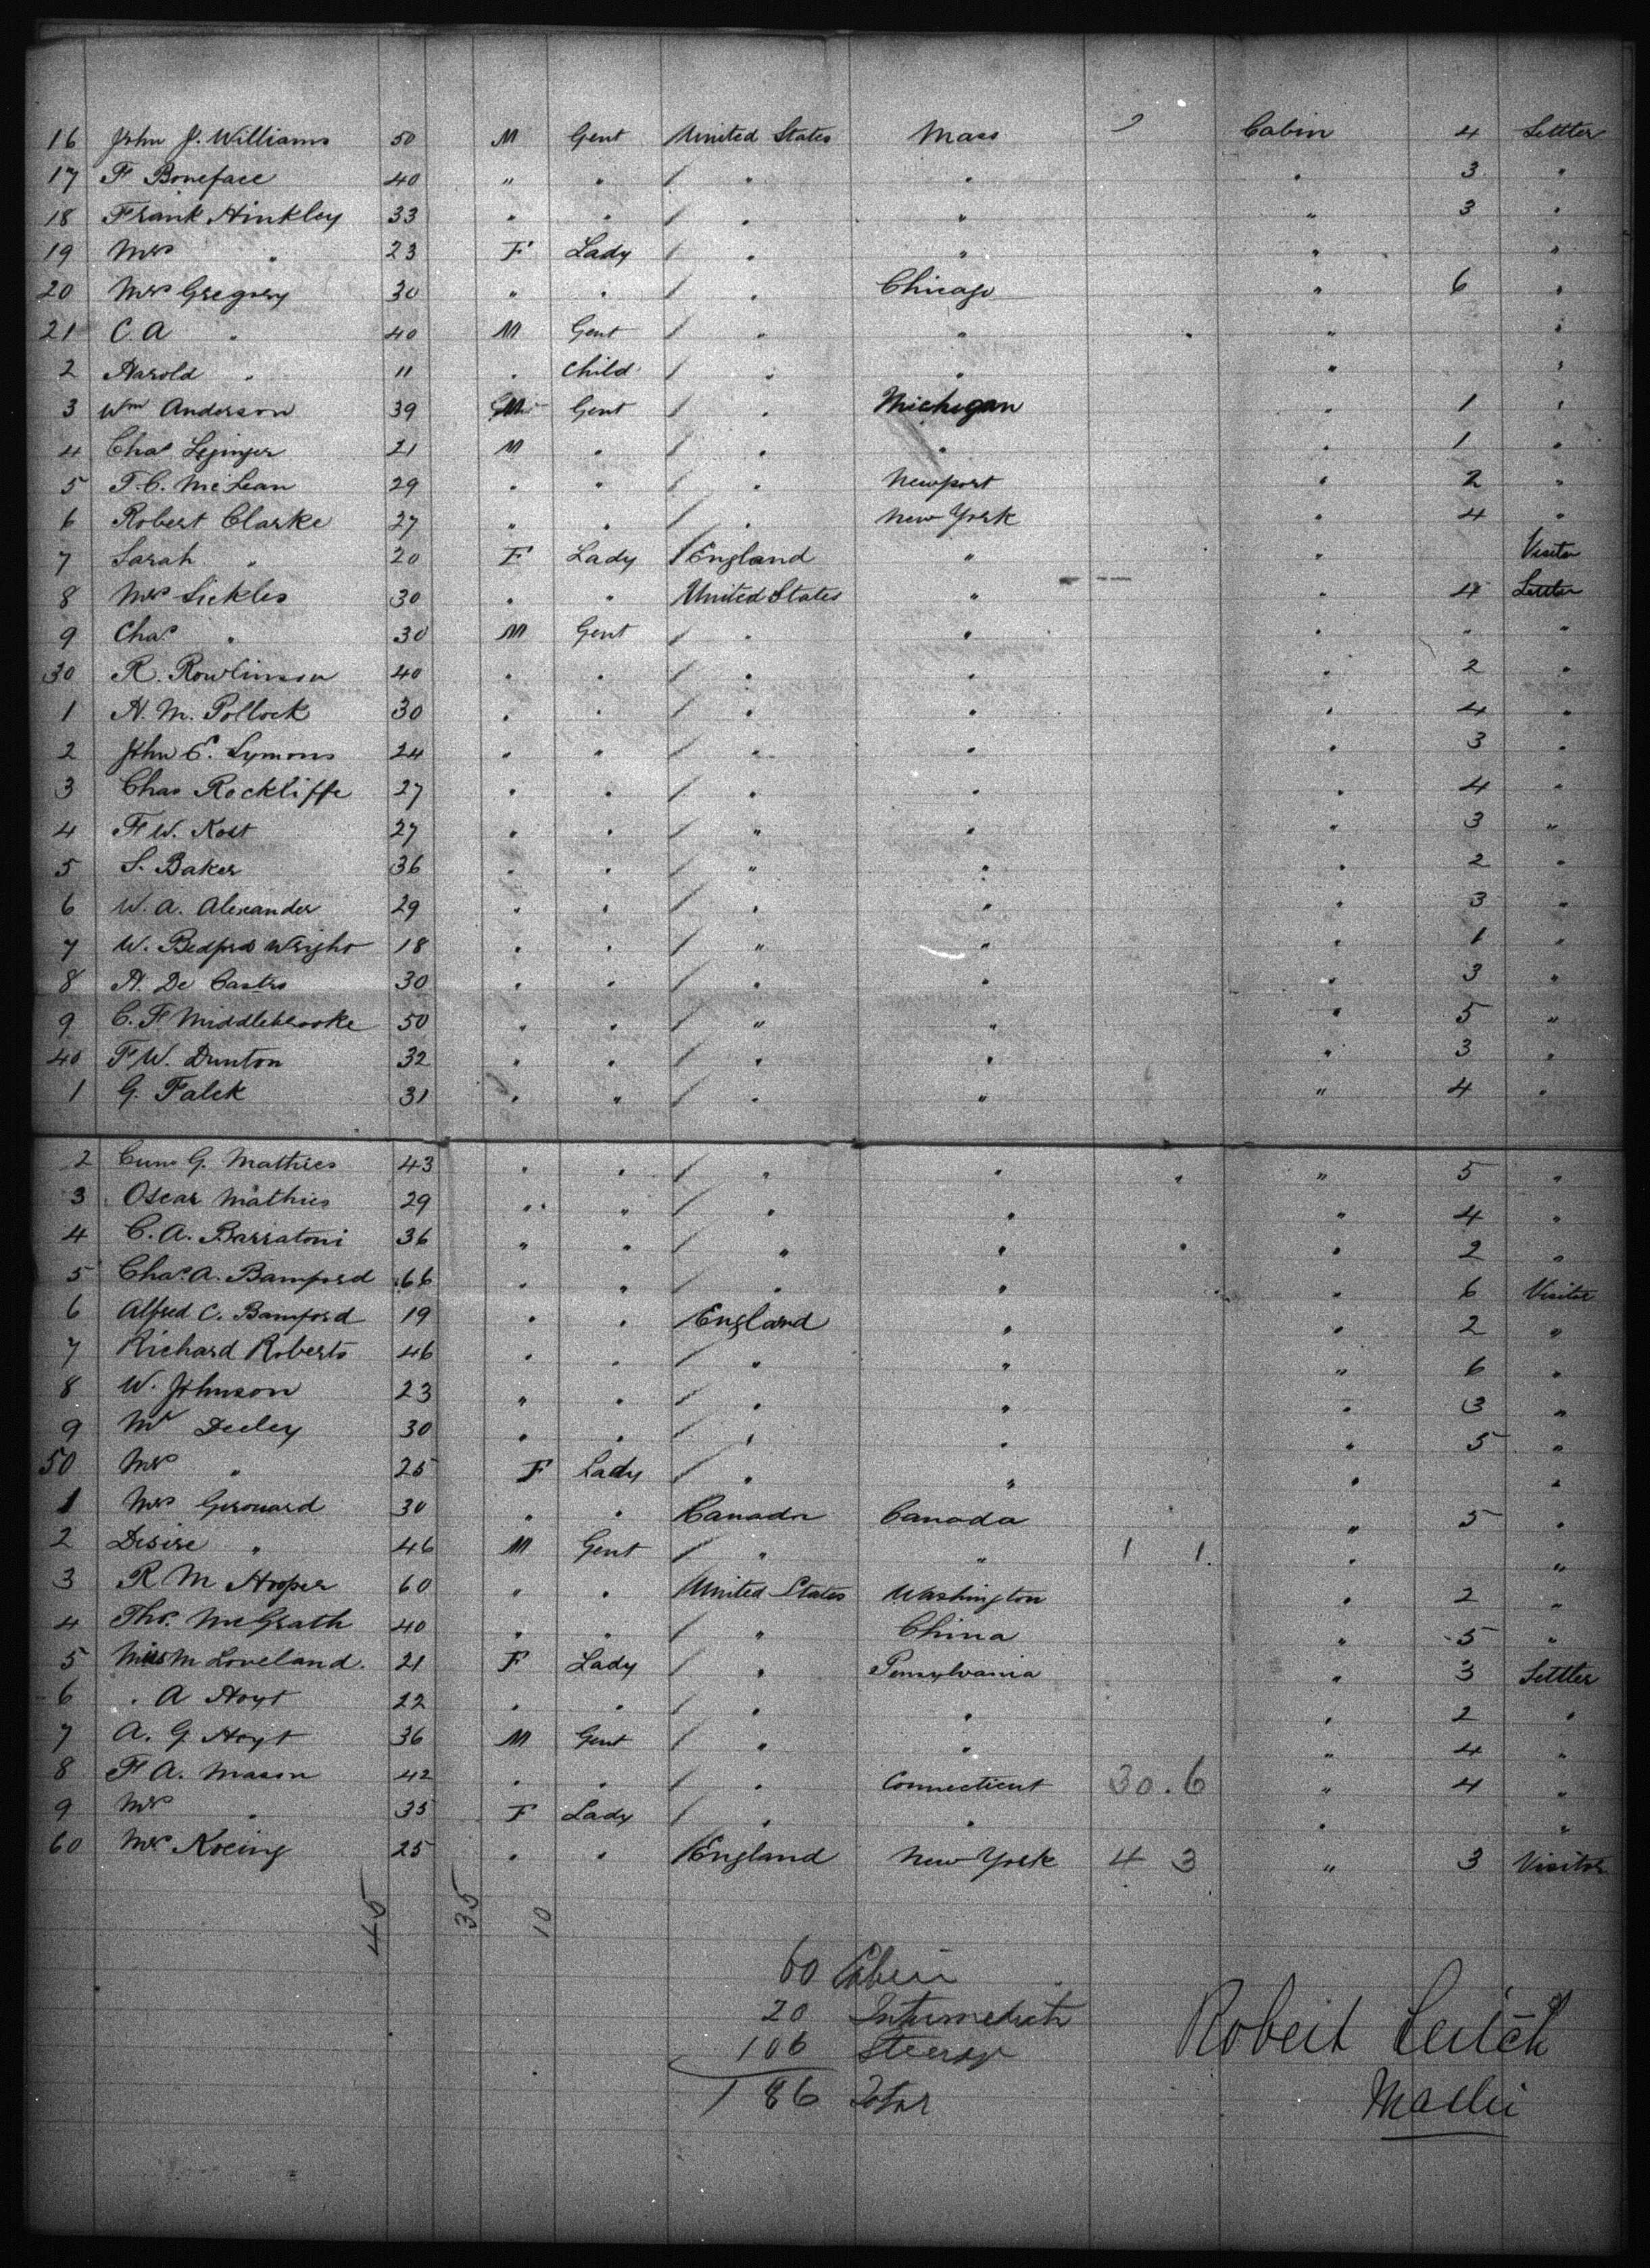 16 John J. Williams 50 M Gent United States Mass Cabin 4 Settler
17 F Boneface 40 " " / " " " 3 "
18 Frank Hinkley 33 " " / " " " 3 "
19 Mrs " 23 F Lady / " " " "
20 Mrs Gregory 30 " " / " Chicago " 6 "
21 C. A " 40 M Gent / " " " "
2 Harold " 11 " Child / " " " "
3 Wm Anderson 39 M Gent / " Michigan " 1 "
4 Chas 21 M " / " " " 1 "
5 T. C. McLean 29 " " / " Newport " 2 "
6 Robert Clarke 27 " " / " New York " 4 "
7 Sarah " 20 F Lady / England " " Visitor
8 Mrs Sickles 30 " " United States " " 4 Settler
9 Chas " 30 M Gent / " " " " "
30 R. Rowlinson 40 " " / " " " 2 "
1 H. M. Pollock 30 " " / " " " 4 "
2 John E. Symons 24 " " / " " " 3 "
3 Chas Rockliffe 27 " " / " " " 4 "
4 F W. Kost 27 " " / " " " 3 "
5 S. Baker 36 " " / " " " 2 "
6 W. A. Alexander 29 " " / " " " 3 "
7 W. Bedford Wright 18 " " / " " " 1 "
8 A. De Castro 30 " " / " " " 3 "
9 C. F Middlebrooke 50 " " / " " " 5 "
40 F W. Dunton 32 " " / " " " 3 "
1 G. Falck 31 " " / " " " 4 "
2 G. Mathies 43 " " / " " " " 5 "
3 Oscar Mathies 29 " " / " " " 4 "
4 C. A. Barratoni 36 " " / " " " " 2 "
5 Chas. A. Bamford 66 " " / " " " 6 Visitor
6 Alfred C. Bamford 19 " " England " " 2 "
7 Richard Roberts 46 " " / " " " 6 "
8 W. Johnson 23 " " / " " " 3 "
9 Mr Deeley 30 " " / " " " 5 "
50 Mrs " 25 F Lady / " " " "
1 Mrs Gerouard 30 " " Canada Canada " 5 "
2 Desire " 46 M Gent / " " 1 1 " "
3 R M Hooper 60 " " United States Washington " 2 "
4 Thos. McGrath 40 " " / " China " 5 "
5 Miss M Loveland. 21 F Lady / " Pensylvania " 3 Settler
6 " A Hoyt 22 " " / " " " 2 "
7 A. G Hoyt 36 M Gent / " " " 4 "
8 F A. Mason 42 " " / " Connecticut 30.6 " 4 "
9 Mrs " 35 F Lady / " " " "
60 Mrs Koeing 25 " " England New York 4 3 " 3 Visitor
45 35 10
60 Cabin
20 Intermediate
106 Steerage
186 Total
Robert Leitch
Master